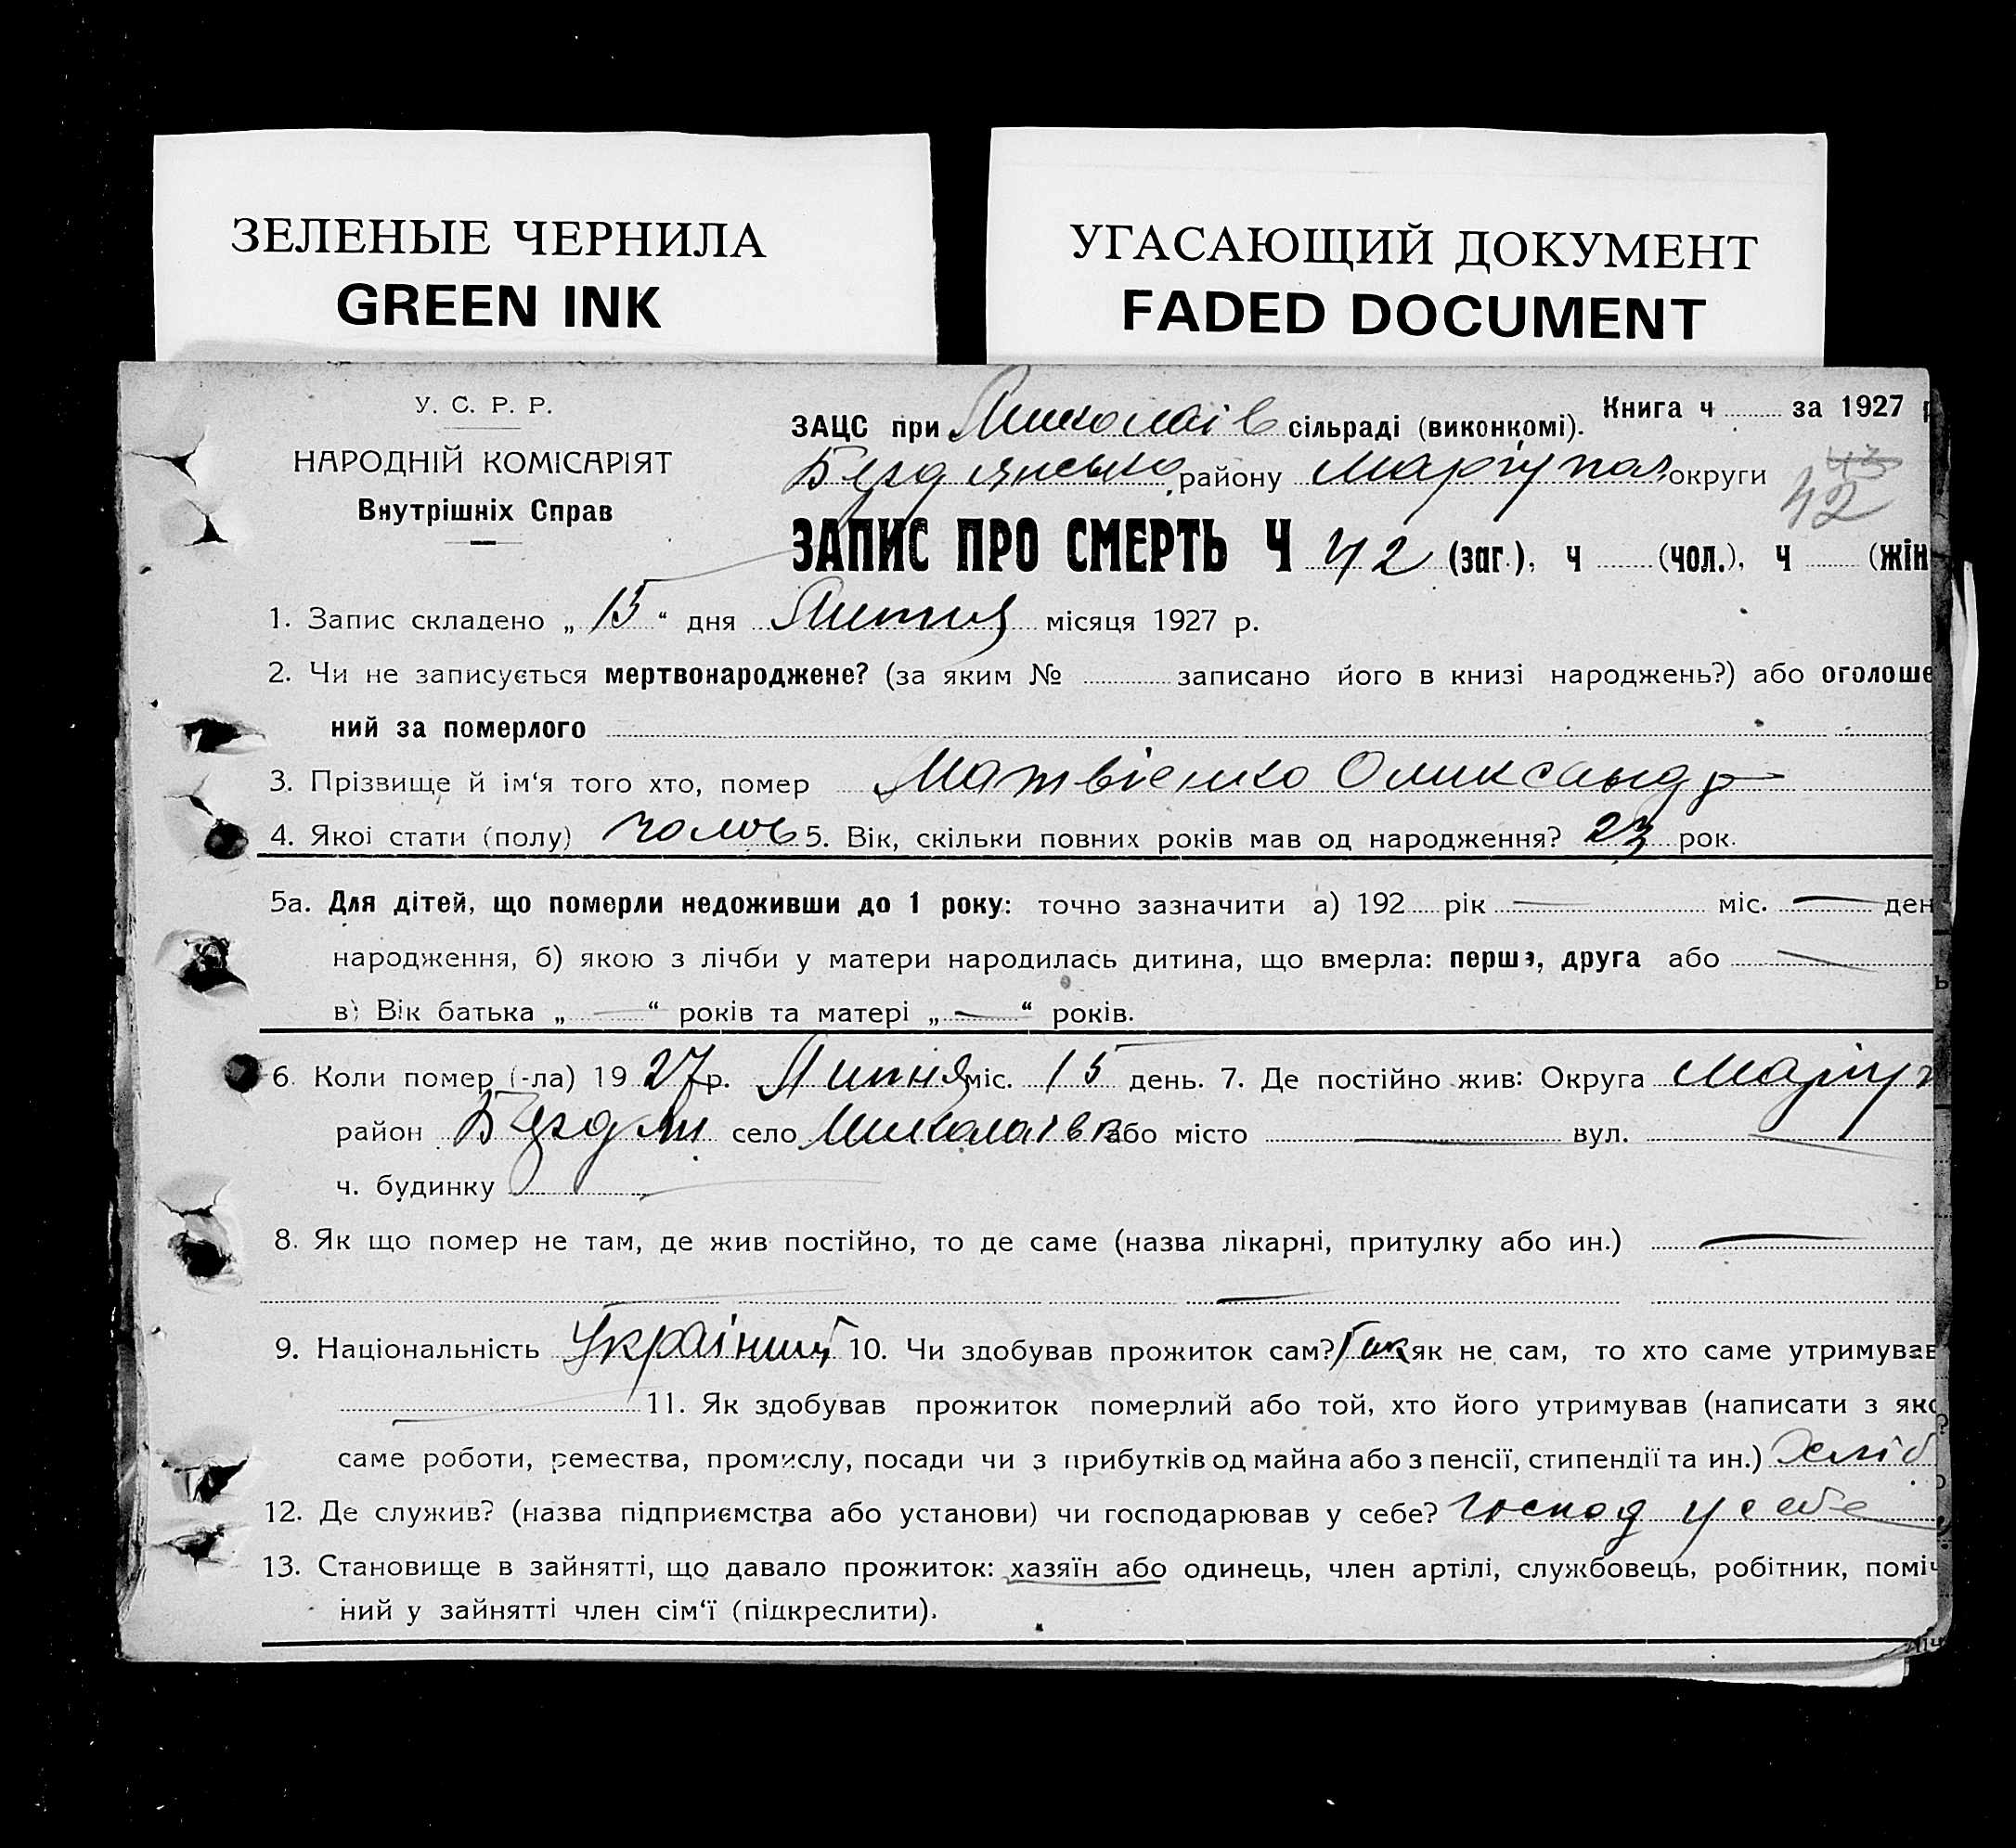 ЗЕЛЕНЫЕ ЧЕРНИЛА
GREEN INK
УГАСАЮЩИЙ ДОКУМЕНТ
FADED DOCUMENT
У. С. Р. Р.
НАРОДНІЙ КОМІСАРІЯТ
Внутрішніх Справ
Книга ч ........ за 1927 р
ЗАЦС при Миколаів сільраді (виконкомі).
Бердянсько району Маріупол округи
43
42
ЗАПИС ПРО СМЕРТЬ Ч 42 (заг.), ч ...... (чол.), ч ...... (жін
1. Запис складено „ 15 “ дня Липня місяця 1927 р.
2. Чи не записується мертвонароджене? (за яким № .......... записано його в книзі народжень?) або оголоше
ний за померлого
3. Прізвище й ім‘я того хто, помер Матвієнко Олександр
4. Якоі стати (полу) чолов 5. Вік, скільки повних років мав од народження? 23 рок.
5а. Для дітей, що померли недоживши до 1 року: точно зазначити а) 192.... рік — міс. — ден
народження, б) якою з лічби у матери народилась дитина, що вмерла: перша, друга або —
в) Вік батька „ — “ років та матері „ — “ років.
6. Коли помер (-ла) 1927 р. Липня міс. 15 день. 7. Де постійно жив: Округа Маріуп
район Бердян село Миколаівк або місто — вул. —
ч. будинку
8. Як що помер не там, де жив постійно, то де саме (назва лікарні, притулку або ин.) —
9. Національність Українець 10. Чи здобував прожиток сам? Так як не сам, то хто саме утримував
11. Як здобував прожиток померлий або той, хто його утримував (написати з яко
саме роботи, ремества, промислу, посади чи з прибутків од майна або з пенсії, стипендії та ин.) Хліб
12. Де служив? (назва підприємства або установи) чи господарював у себе? Господ у себе
13. Становище в зайнятті, що давало прожиток: хазяїн або одинець, член артілі, службовець, робітник, поміч
ний у зайнятті член сім‘ї (підкреслити).